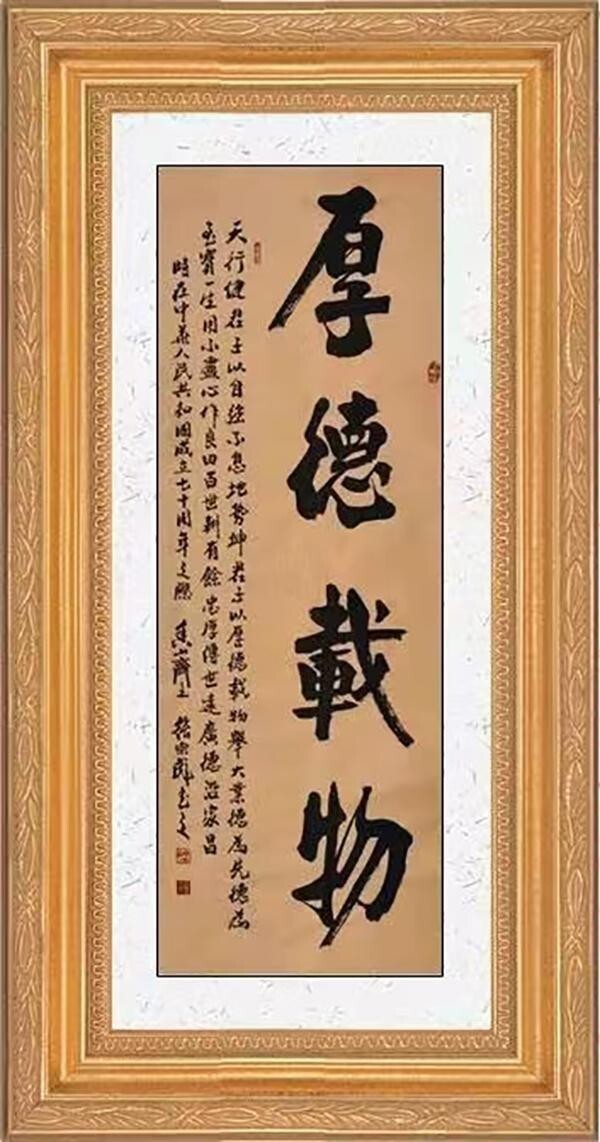 厚德載物
天行健君子以自強不息地势坤君子以厚德載物舉大業德為先德為
至寳一生用小盡心作良田百世耕有餘忠厚傳世遠廣德治家昌
時在中華人民共和國成立七十周年之際